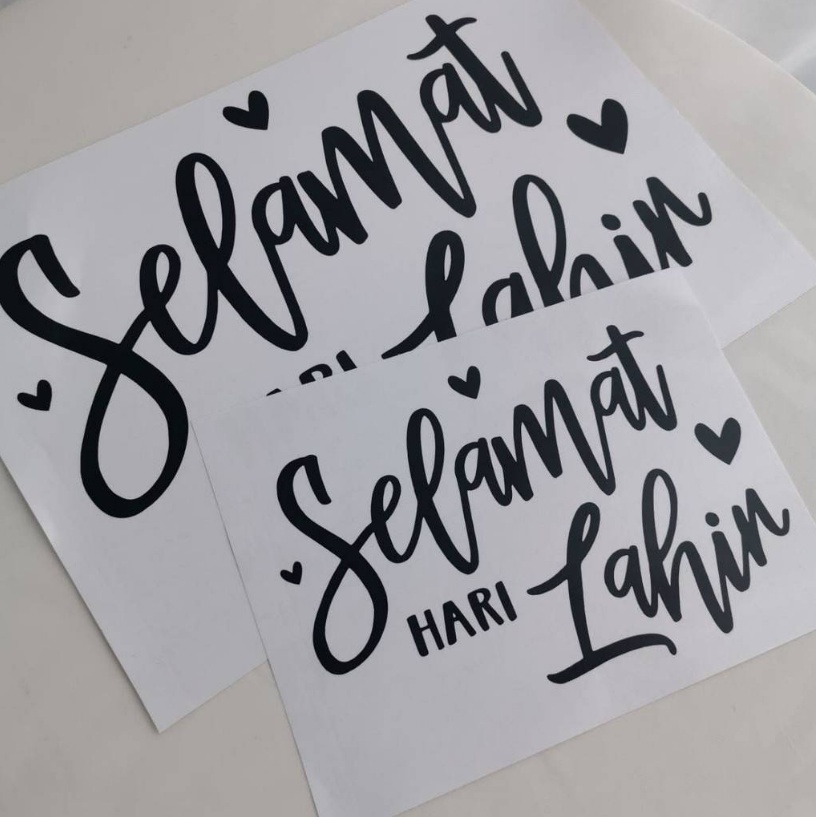 Selamat
HARI Lahir
Selamat
HARI Lahir